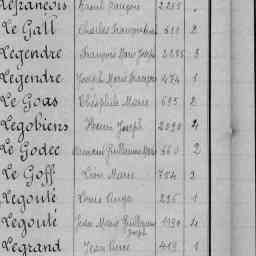 Lefrançois Raoul François 2265
Le Gall Charles François 511 2
Legendre François Marie Joseph 2285 3
Legendre Joseph Marie François 474 1
Le Goas Théophile Marie 695 2
Legobien Henri Joseph 2090 4
Le Godec Guillaume Marie 660 2
Le Goff Léon Marie 704 2
Legoulé Louis Ange 225 1
Legoulé Jean Marie Guillaume Joseph 1190 4
Legrand Jean Pierre 419 1